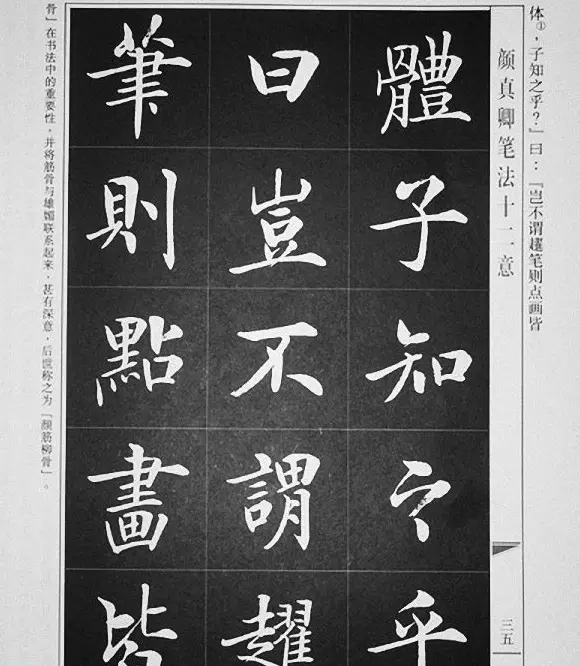 体①，子知之乎？」曰：『岂不谓趯笔则点画皆
颜真卿笔法十二意
三五
體子知之乎
曰豈不謂趯
筆則點畫皆
骨」在书法中的重要性，并将筋骨与雄媚联系起来，甚有深意，后世称之为「颜筋柳骨」。